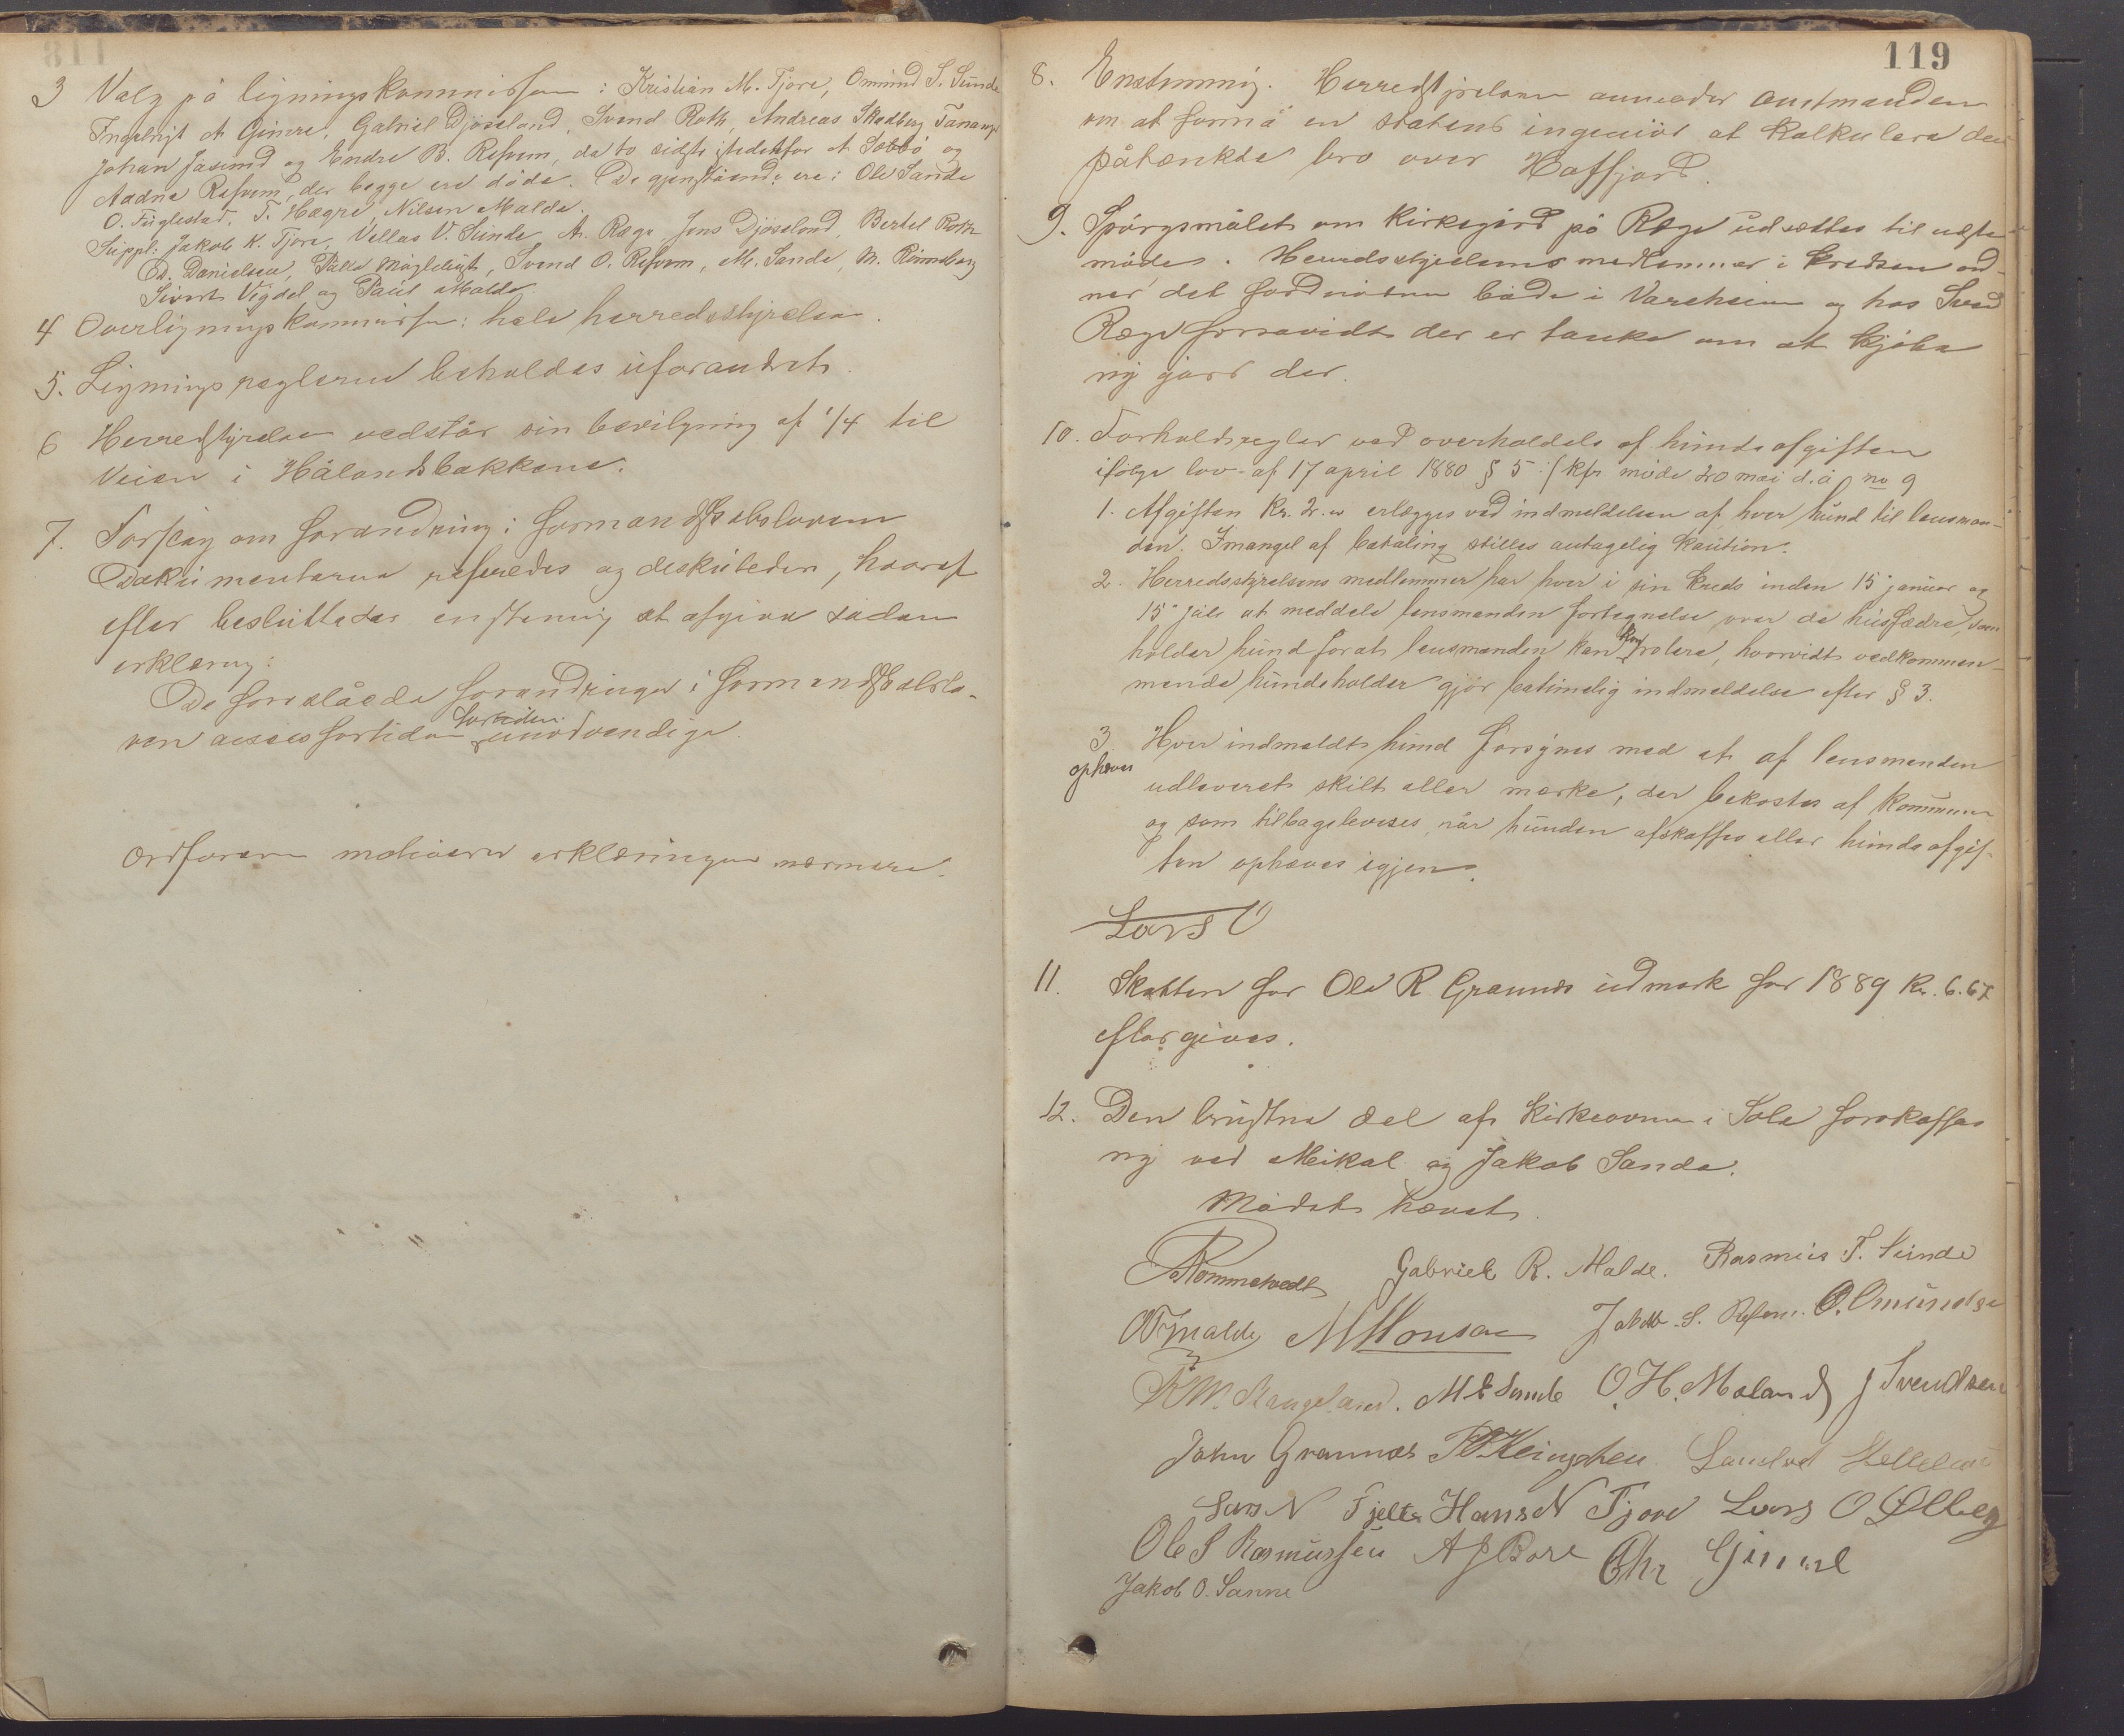 3 Valg på ligningskommission: Kristian M. Tjore, Ommund S. Sunde
Ingebrigt A Gimre, Gabriel Djöseland, Svend Roth, Andreas Skadberg Tananger
Johan Jåsund og Endre B. Refvem, de to sidste istedetfor A Sobbö og
Aadne Refvem, der begge ere döde. De gjenstående ere: Ole Sande
O. Fuglestad, T. Hægre, Nilsen Malde.
Suppl: Jakob K. Tjore, Vellas V. Sunde, A. Ræge, Jens Djöseland, Bertel Roth
Ed. Danielsen, Palle Mögletveit, Svend O. Refvem, M. Sande, M. Rinnsberg
Sivert Vigdel og Paul Malde
4 Overligningskommission: hele herredsstyrelsen.
5. Ligningsreglerne beholdes uforandret.
6 Herredstyrelsen vedstår sin bevilgning af 1/4 til
Veien i Hålandsbakkene.
7. Forslag om forandring i formandskabsloven
Dokumenterne refereredes og deskuteden, hvoraf
efter besluttedes enstemig at afgive sådan
erklæring:
De foreslåede forandringer i formandskabslo-
ven ansees fortiden
fortiden
unödvendige.
Ordföreren motiverer erklæringen nærmere.
119
8. Enstemmig. Herredstyrelsen anmoder amtmanden
om at formå en statens ingeniör at kalkulere den
påtænkte bro over Hafsfjord.
9. Spörgsmålet om kirkegård på Ræge udsættes til næste
möde. Herredsstyrelsens medlemmer i kredsen
det fornödne både i Vareheim og hos Svend
Ræge forsavidt der er tanke om at kjöbe
ny jord der.
10. Forholdsregler ved overholdelse af hundeafgiften
ifölge lov af 17 april 1880 § 5. (kfr. möde 20 mai d.å no 9
1. Afgiften Kr. 2. erlægges ved indmeldelsen af hver hund til lensman-
den. Imangel af betaling stilles antagelig kaution.
2. Herredsstyrelsens medlemmer har hver i sin kreds inden 15 januar og
15 juli at meddele lensmanden fortegnelse over de husfædre, som
holder hund forat lensmanden kan kontrolere, hvorvidt vedkommen-
mende hundeholder gjör betimelig indmeldelse efter § 3.
3 Hver indmeldt hund forsynes med et af lensmanden
ophæves
udleveret skilt eller mærke, der bekostes af kommunen
og som tilbageleveres, når hunden afskaffes eller hundeafgif-
ten ophæves igjen.
Lars O
11. Skatten for Ole R Grannes udmark for 1889 Kr. 6.67
eftergives.
12. Den brustne del af kirkeovnen i Sole forskaffes
ny ved Mikal og Jakob Sande.
Mödet hævet.
Rommetvedt Gabriel R. Malde. Rasmus T. Sunde
OTMalde MMonsen Jakob S. Refvem. O. Omundsen
R W. Stangeland. M E Sande O. H. Meland J Svendsen
John Grannes Lars N Fjelte Hans N Tjore Lars O Ølberg
Ole S Rasmussen A J Bore Chr Gimre
Jakob O. Sanne